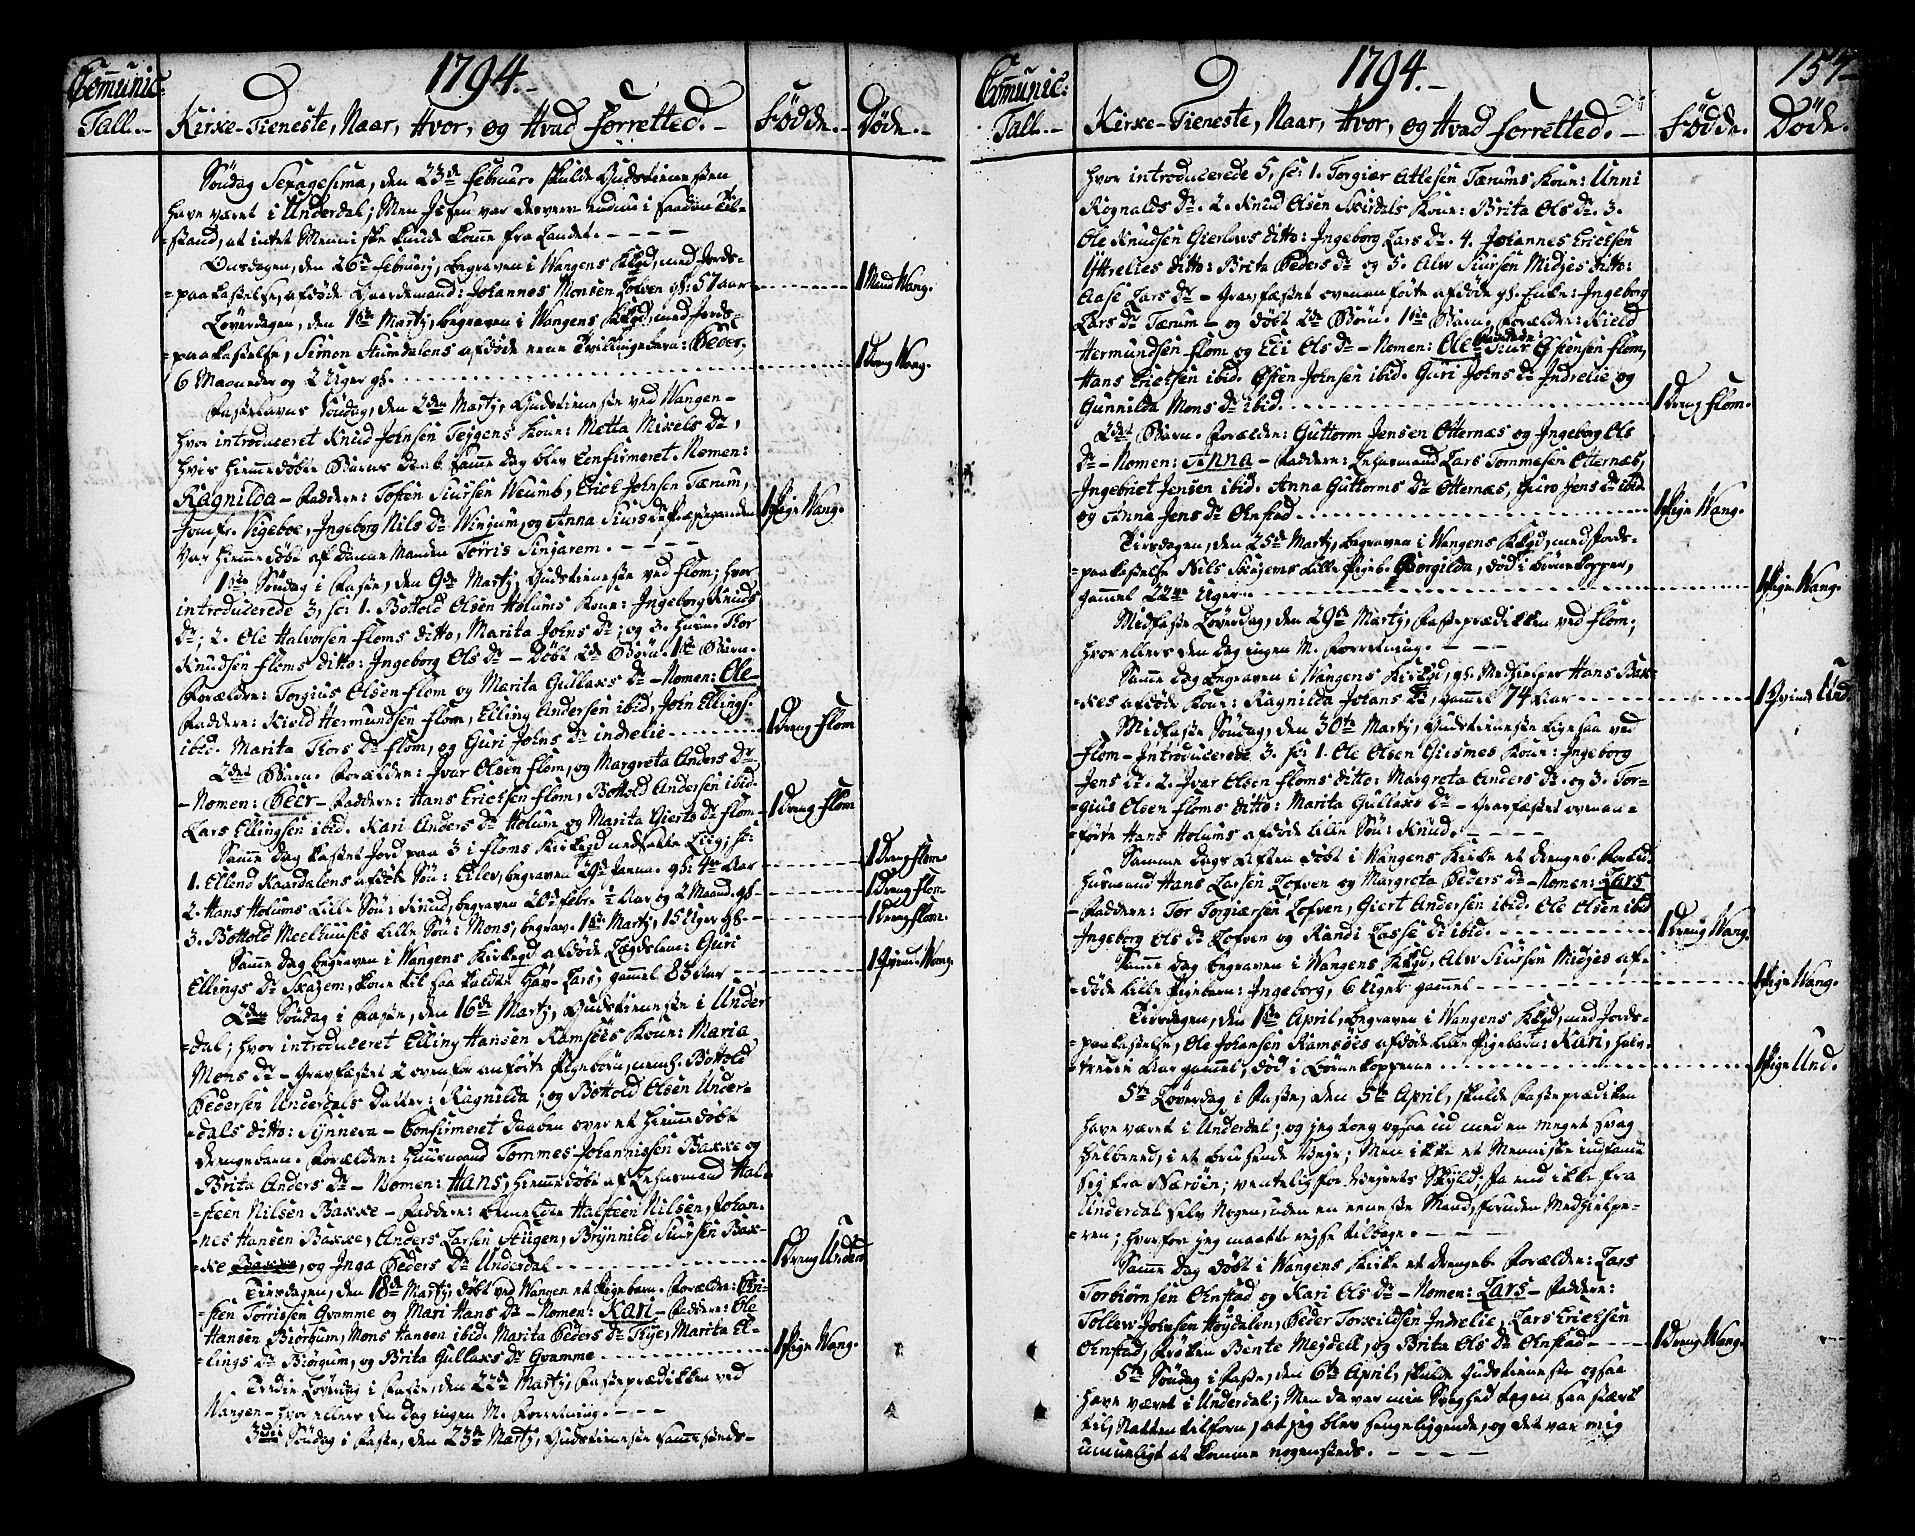 Comunic: Tall.-
1794.-
Kirke-Tieneste, Naar, Hvor, og Hvad forretted.-
Födde.-
Döde.-
Söndag Sexagesima, den 23de Februar. skulde Gudstienesten
have været i Underdal; Men Jisen var desverre endnu i saadan Til-
=stand, at intet Menniske kunde komme fra Landet. - - - -
Onsdagen, den 26de Februarij, begraven i Wangens Kkgd, med Jords-
=paakastelse, afdöde Gaardemand: Johannes Monsen Lofven gl: 57 aar - - - 1 Mand Wang.
Löverdagen, den 1ste Martij, begraven i Wangens Kkgd, med Jords-
=paakastelse, Simon Stundalens afdöde eene Tvillingebarn: Peder,
6 Maaneder og 2 Uger gl. - - - 1 Dreng Wang.
Fastelavns Söndag, den 2den Martij, Gudstieneste ved Wangen-
hvor introduceret Knud Johnsen Teygens Kone: Metta Mikels Dr,
hvis hiemmedöbte Barns Daab samme dag blev Confirmeret. Nomen:
Ragnilda - Faddere: Tosten Siursen Weumb, Erick Johnsen Tærum,
Jomfr. Vigeboe, Ingeborg Nils Dr Winjum, og Anna Siurs Dr Præstegaarden 1 Pige Wang.
Var hiemmedöbt af Danne Manden Törris Sinjarem. - - -
1ste Söndag i Faste, den 9de Martij, Gudstieneste ved Flom; hvor
introducerede 3, sc: 1. Bottold Olsen Holums Kone: Ingeborg Knuds
Dr; 2. Ole Halvorsen Floms ditto, Marita Johns Dr; og 3. Huusm. Tor
Knudsen Floms ditto: Ingeborg Ols Dr - Döbt 2de Börn. 1ste Barn.
Forældre: Torgius Olsen Flom og Marita Gullaks Dr - Nomen: Ole-
Faddere: Kield Hermundsen Flom, Elling Andersen ibid, John Ellings.
ibid. Marita Tors Dr Flom, og Guri Johns Dr indrelie - - - 1 Dreng Flom
2det Barn. Forældre: Ivar Olsen Flom, og Margreta Anders Dr
- Nomen: Peer - Faddere: Hans Ericksen Flom, Bottold Andersen ibid.
Lars Ellingsen ibid. Kari Anders Dr Holum og Marita Gierts Dr Flom - 1 Dreng Flom
Samme Dag kastet Jord paa 3 i Floms Kirkegd nedsatte Liig, sc:
1. Ellend Kaardalens afdöde Sön: Eilev, begraven 29de Janu. gl: 4re Aar - - - 1 Dreng Flom
2. Hans Holums lille Sön: Knud, begraven 20de Febr. 1/2 Aar og 2 Maaned. gl - - - 1 Dreng Flom
3. Bottold Meelhuuses lille Sön: Mons, begrav. 1ste Martij, 15 Uger gl. - - - 1 Dreng Flom.
Samme Dag begraven i Wangens Kirkegd afdöde Lægdslem: Guri
Ellings Dr Skajem, Kone til saa kaldte Hav-Lars, gammel 83 Aar - - - 1 Qvind. Wang.
2den Söndag i Faste, den 16de Martij, Gudstieneste i Under
=dal; hvor introduceret Elling Hansen Ramsöes Kone: Maria
Mons Dr - Gravfæstet 2 ovenfor anförte Pigebörn, neml: Bottold
Pedersen Underdals datter: Ragnilda; og Bottold Olsen Under-
=dals ditto: Synneva - Confirmeret Daaben over et hiemmedöbt
Drengebarn. Forældre: Huusmand Tommes Johannissen Bakke og
Brita Anders Dr - Nomen: Hans, hiemmedöbt af Lehnsmand Hal-
=steen Nilsen Bakke - Faddere: bemeldte Halsteen Nilsen, Johan-
nes Hansen Bakke, Anders Larsen Stigen, Brynnild Siursen Bak-
=ke og Inga Peders Dr Underdal - - - 1 Dreng Underd
Tirsdagen, den 18de Martij, döbt ved Wangen et Pigebarn. Forældre: Chri-
sten Torrissen Qvamme og Mari Hans Dr - Nomen: Kari - Faddere: Ole
Hansen Biörgum, Mons Hansen ibid. Marita Peders Dr Frye, Marita El-
=lings Dr Biörgum, og Brita Gullaks Dr Qvamme - - - 1 Pige Wang.
Tredie Löverdag i Faste, den 22de Martij, Fasteprædikken ved
Wangen - hvor ellers den dag ingen M. Forretning. - - -
3die Söndag i Faste, den 23de Martij, Gudstieneste sammesteds-
Comunic: Tall.-
1794.-
157-
Kirke-Tieneste, Naar, Hvor, og Hvad forretted.-
Födde.
Döde.
hvor introducerede 5, sc: 1. Torgier Atlesen Tærums Kone: Unni
Rognalds Dr. 2. Knud Olsen Skirdals Kone: Brita Ols Dr. 3.
Ole Knudsen Gierlows ditto: Ingeborg Lars Dr. 4. Johannes Ericksen
Yttrelies ditto: Brita Peders Dr og 5. Alw Siursen Midjes ditto:
Aase Lars Dr - Gravfæstet ovenanförte afdöde gl. Enke: Ingeborg
Lars Dr Tærum - og döbt 2de Börn. 1ste Barn, Forældre: Kield
Hermundsen Flom og Eli Ols Dr - Nomen: Ole - Faddere: Siur Ostensen Flom,
Hans Ericksen ibid. Östen Johnsen ibid. Guri Johns Dr Indrelie og
Gunnilda Mons Dr ibid. - - - 1 Dreng Flom.
2det Barn. Forældre: Guttorm Jensen Otternæs og Ingeborg Ols
Dr - Nomen: Anna - Faddere: Lehnsmand Lars Tommesen Otternæs,
Ingebriet Jensen ibid. Anna Guttorms Dr Otternæs, Guro Jens Dr ibid
og Anna Jens Dr Onstad - - - 1 Pige Wang.
Tirsdagen, den 25de Martij, begraven i Wangens Kkgd, med Jords-
=paakastelse Nils Skiejems lille Pigeb. Borgilda, död i Börnekopper,
gammel 22ve Uger. - - - 1 Pige Wang.
Midfaste Löverdag, den 29de Martij, Fasteprædikken ved Flom;
hvor ellers den dag ingen M. Forretning. - - -
Samme Dag begraven i Wangens Kirkegd, gl. Medhielper Hans Bak-
=kes afdöde Kone: Ragnilda Johans Dr, gammel 74 Aar - - - 1 Qvinde Und.
Midfaste Söndag, den 30te Martij, Gudstieneste ligesaa ved
Flom - Introducerede 3. sc: 1. Ole Olsen Giesmes Kone: Ingeborg
Jens Dr. 2. Ivar Olsen Floms ditto: Margreta Anders Dr. og 3. Tor-
=gius Olsen Floms ditto: Marita Gullaks Dr - Gravfæstet ovenan-
=förte Hans Holums afdöde lille Sön: Knud. - - -
Samme Dags Aften döbt i Wangens Kirke et Drengeb. Foræld.
Huusmand Hans Larsen Lofven og Margreta Peders Dr - Nomen: Lars
- Faddere: Tor Torgiersen Lofven, Giert Andersen ibid. Ole Olsen ibid
Ingeborg Ols Dr Lofven og Randi Lasse Dr ibid. - - - 1 Dreng Wang.
Samme dag begraven i Wangens Kkgd, Alw Siursen Midjes af-
=döde lille Pigebarn: Ingeborg, 6 Uger gammel - - - 1 Pige Wang.
Tirsdagen, den 1ste April, begraven i Wangens Kkgd, med Jords-
=paakastelse, Ole Johansen Ramsöes afdöde lille Pigebarn: Kari, halv-
=tredie Aar gammel, död i Börnekopperne - - - 1 Pige Und.
5te Löverdag i Faste, den 5te April, skulde Fasteprædiken
have været i Underdal; og jeg tog ogsaa ud med en meget svag
Helbred, i et brusende Veyr; Men ikke et Menniske indfandt
sig fra Næröen; ventelig for Veyrets Skyld; Ja end ikke fra
Underdal selv Nogen, uden en eneste Mand, foruden Medhielpe-
ren; hvorfor jeg maatte reyse tilbage. - - - -
Samme dag döbt i Wangens Kirke et Drengeb. Forældre: Lars
Torbiörnsen Onstad og Kari Ols Dr - Nomen: Lars - Faddere:
Tollew Johnsen Höydalen, Peder Torkildsen Indrelie, Lars Ericksen
Onstad, Fröken Bente Mejdell, og Brita Ols Dr Onstad - - - 1 Dreng Wang.
5te Söndag i Faste, den 6te April, skulde Gudstieneste ogsaa
have været i Underdal; Men da var min Svaghed tagen saa stærk
til, Natten tilforn, at jeg blev sengeliggende, og det var mig
umueligt at komme nogensteds. - - - -